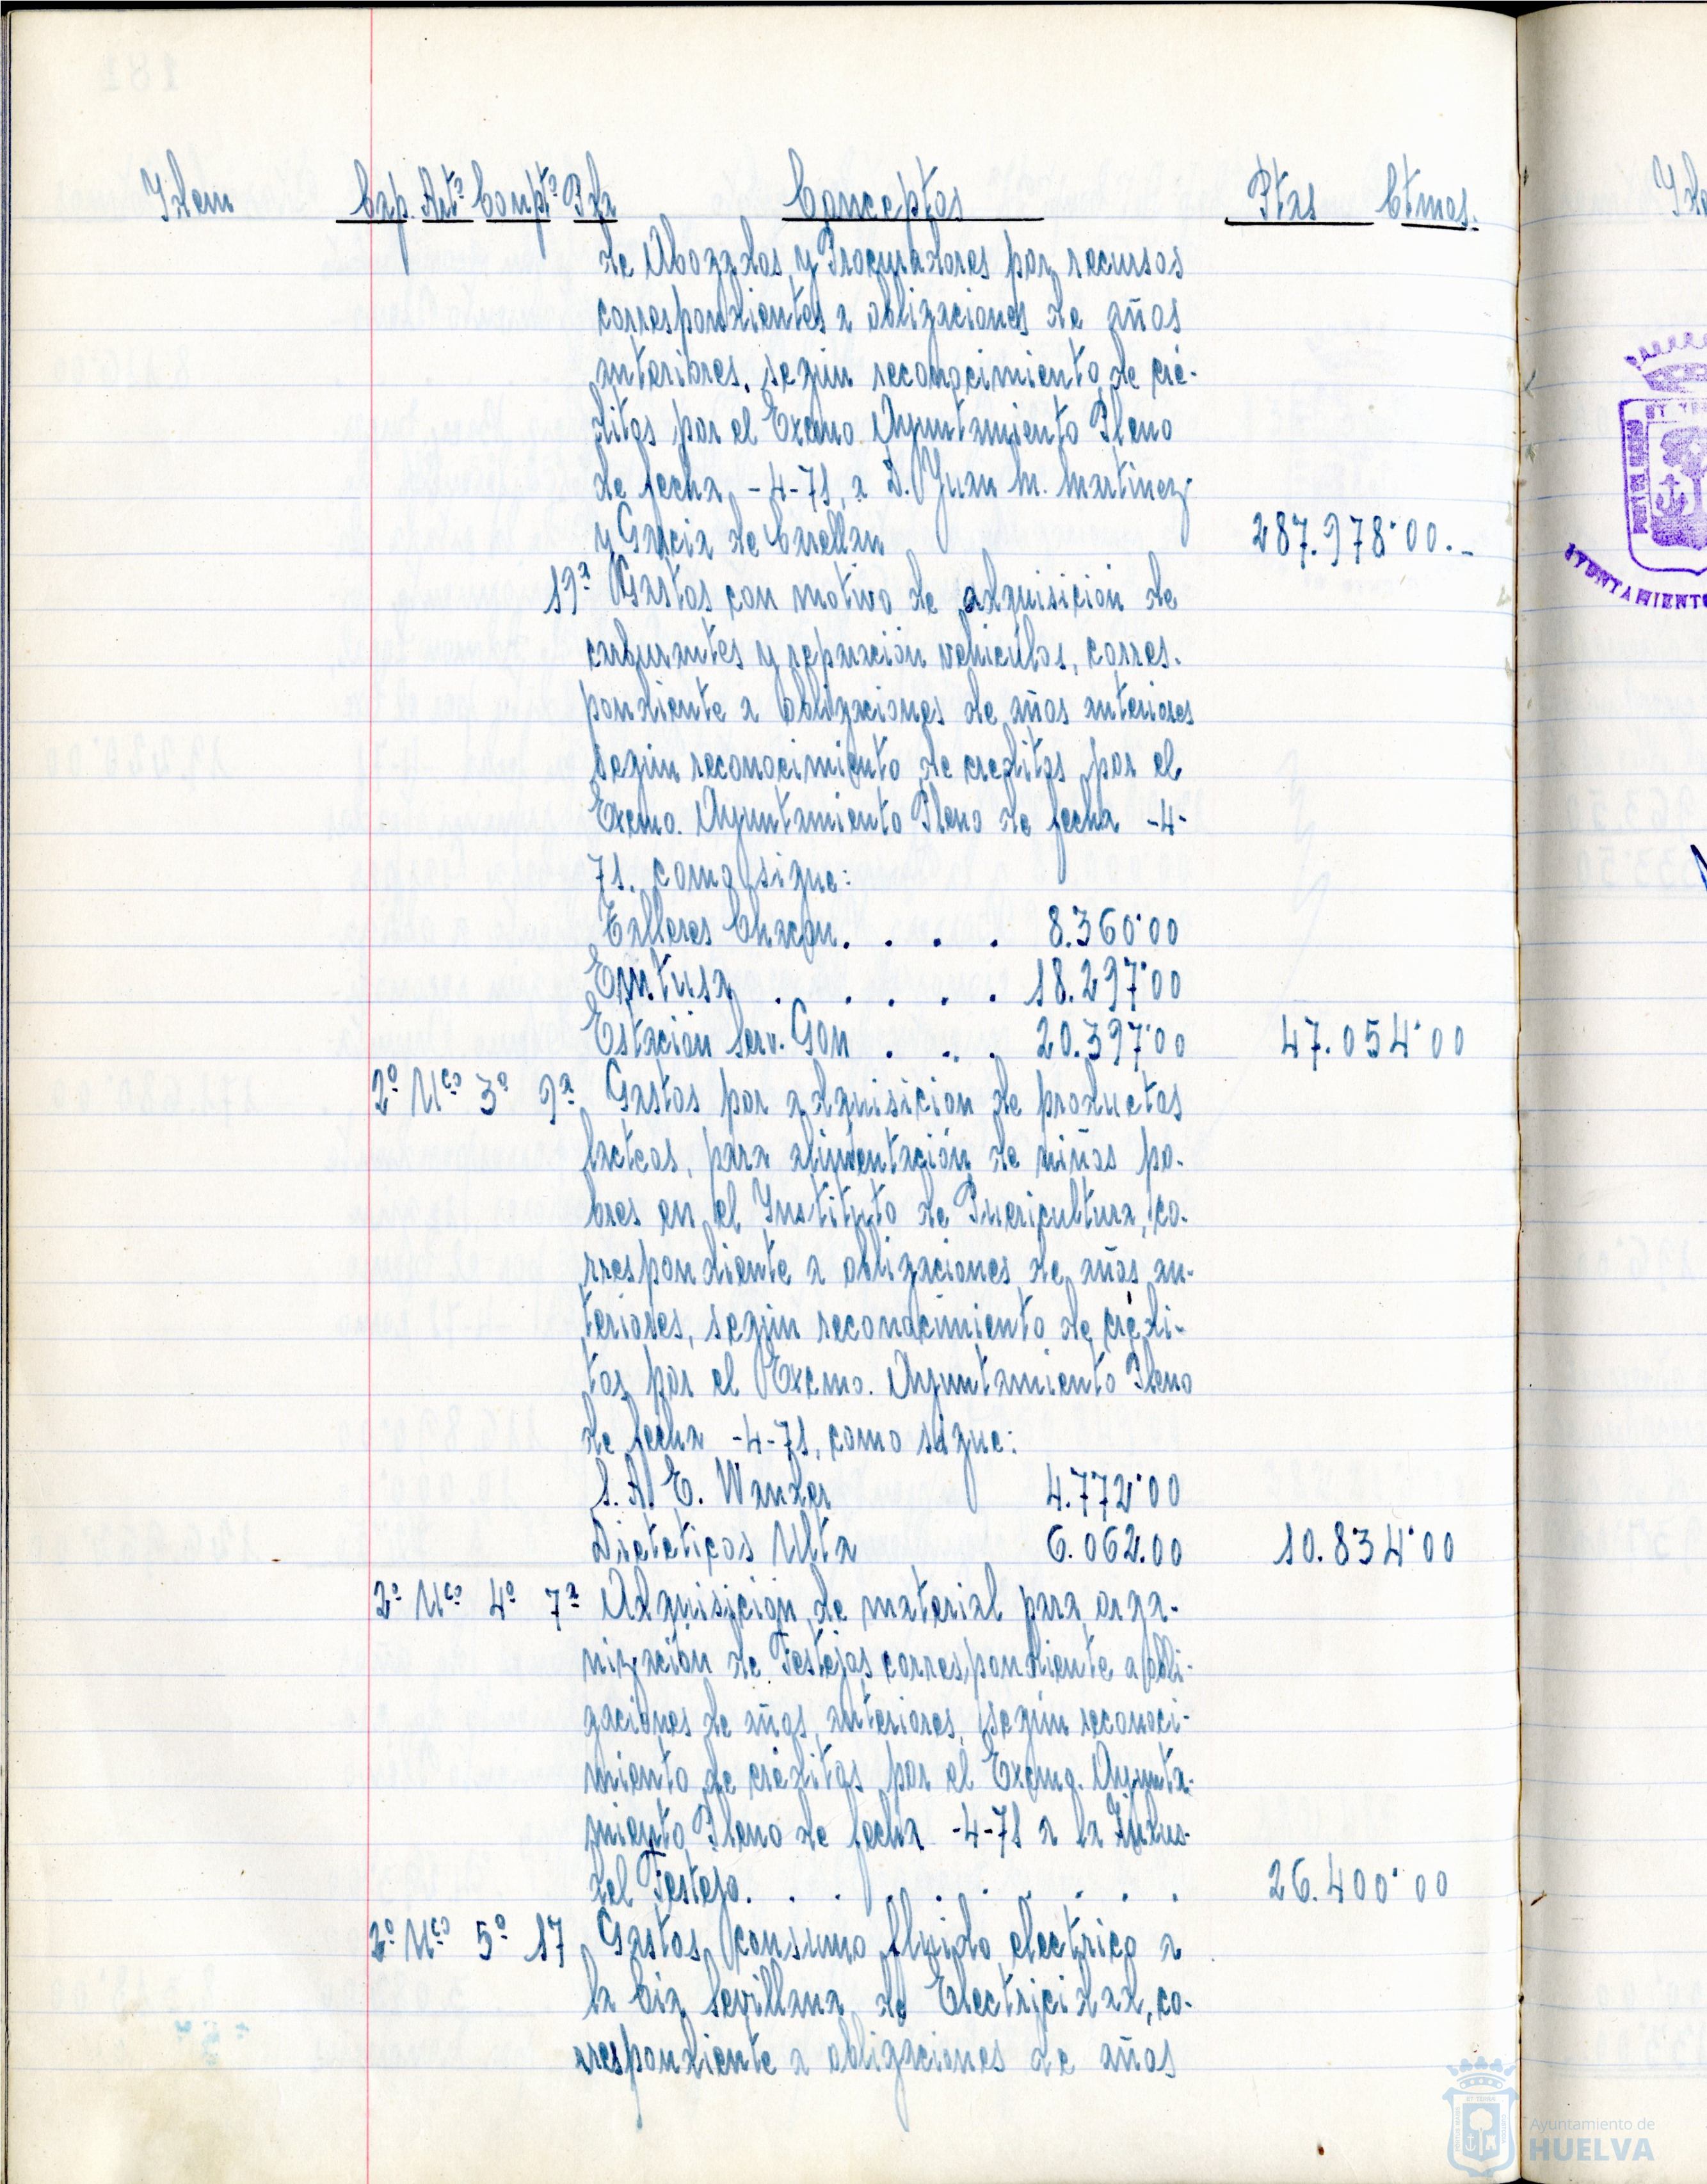 Idem Cap. Artº Comptº Pda Conceptos Ptas Ctmos.
de Abogados y Procuradores por recursos
correspondientes a obligaciones de años
anteriores, según reconocimiento de cré-
ditos por el Excmo Ayuntamiento Pleno
de fecha -4-71, a D. Juan M. Martinez
y Garcia de Carellan 287.978'00.-
19ª Gastos con motivo de adquisición de
carburantes y reparación vehiculos, corres-
pondiente a obligaciones de años anteriores
según reconocimiento de creditos por el
Excmo. Ayuntamiento Pleno de fecha -4-
71. como sigue:
Talleres Chacon. . . . 8.360'00
Emtusa . . . . . 18.297'00
Estación Serv. Gon . . . 20.397'00 47.054'00
2º Uco 3º 9ª Gastos por adquisicion de productos
lacteos, para alimentación de niños po-
bres en el Instituto de Puericultura, co-
rrespondiente a obligaciones de años an-
teriores, según reconocimiento de crédi-
tos por el Excmo. Ayuntamiento Pleno
de fecha -4-71, como sigue:
S. A. E. Wander 4.772'00
Dieteticos Ulta 6.062.00 10.834'00
2º Uco 4º 7ª Adquisición de material para orga-
nización de Festejos correspondiente a obli-
gaciones de años anteriores, según reconoci-
miento de créditos por el Excmo. Ayunta-
miento Pleno de fecha -4-71 a la Indus-
del Festejo. . . . . . . . . 26.400'00
2º Uco 5º 17 Gastos consumo fluido electrico a
la Cia Sevillana de Electricidad, co-
rrespondiente a obligaciones de años
AYUNTAMIENTO
Ayuntamiento de
HUELVA